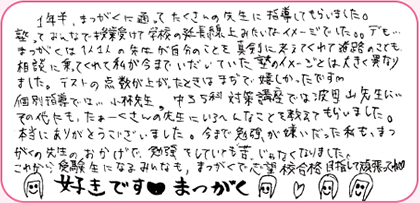 1年半、まつがくに通ってたくさんの先生に指導してもらいました。
塾ってみんなで授業受けて学校の延長線上みたいなイメージでした。。でも…
まつがくは1人1人の先生が自分のことを真剣に考えてくれて進路のことも
相談に乗ってくれて私が今までいだいていた塾のイメージとは大きく異なり
ました。テストの点数が上がったときはまぢで嬉しかったです
個別指導では…小林先生。中3 5科対策講座では波田山先生にい
その他にも、たぁーくさんの先生にいろんなことを教えてもらいました。
本当にありがとうございました。今まで勉強が嫌いだった私も、まつ
がくの先生のおかげで、勉強をしていても苦じゃなくなりました。
これから受験生になるみんなも、まつがくで志望校合格目指して頑張ってね
好きです♥まつがく ♡